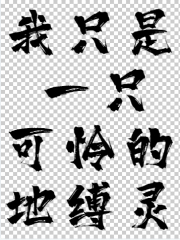 我只是
一只
可怜的
地缚灵